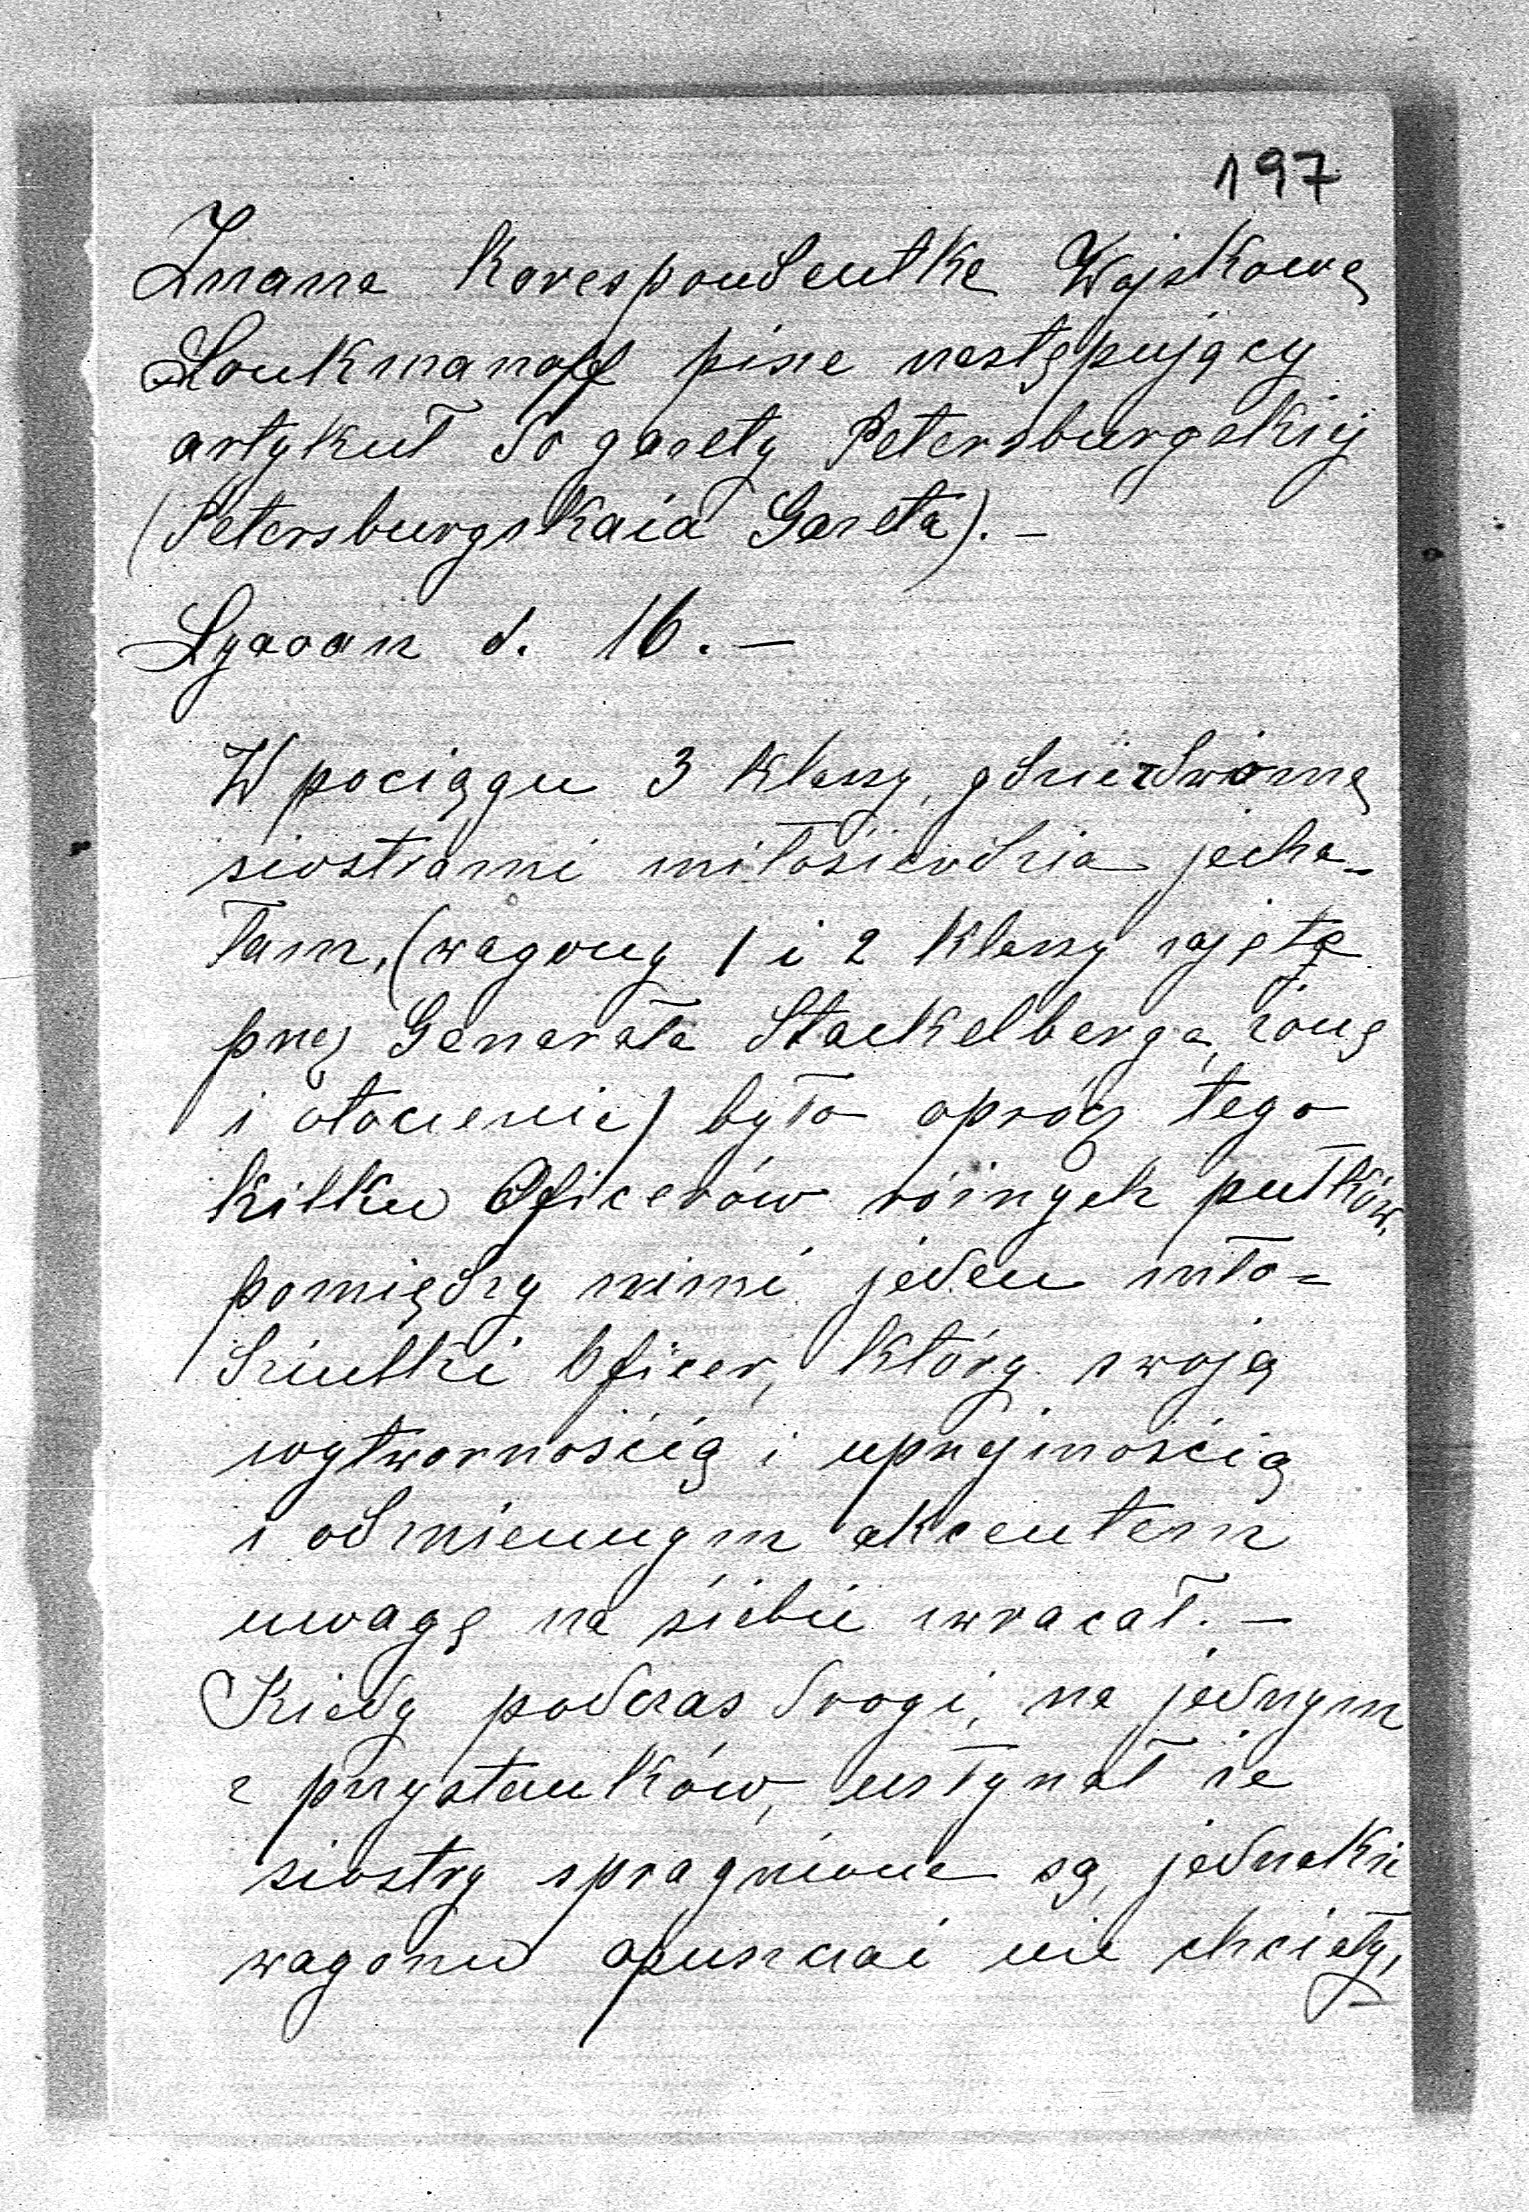 197
Znana Korespondentka Wojskowa
Loukmanoff pisze następujący
artykuł do gazety Petersburgskiej
(Petersburgskaia Gazeta). —
Lyaoan d. 16. —
W pociągu 3 klassy, gdzie z dwiema
siostrami miłosierdzia jecha-
łam, (wagony 1 i 2 klassy zajęte
przez Generała Stackelberga, żonę
i otoczenie) było oprócz tego
kilku Oficerów różnych pułków,
pomiędzy nimi jeden mło-
dziutki Oficer, który swoją
wytwornością i uprzejmością
i odmiennym akcentem
uwagę na siebie zwracał. —
Kiedy podczas drogi, na jednym
z przystanków, usłyszał że
siostry spragnione są, jednakże
wagonu opuszczać nie chciały,